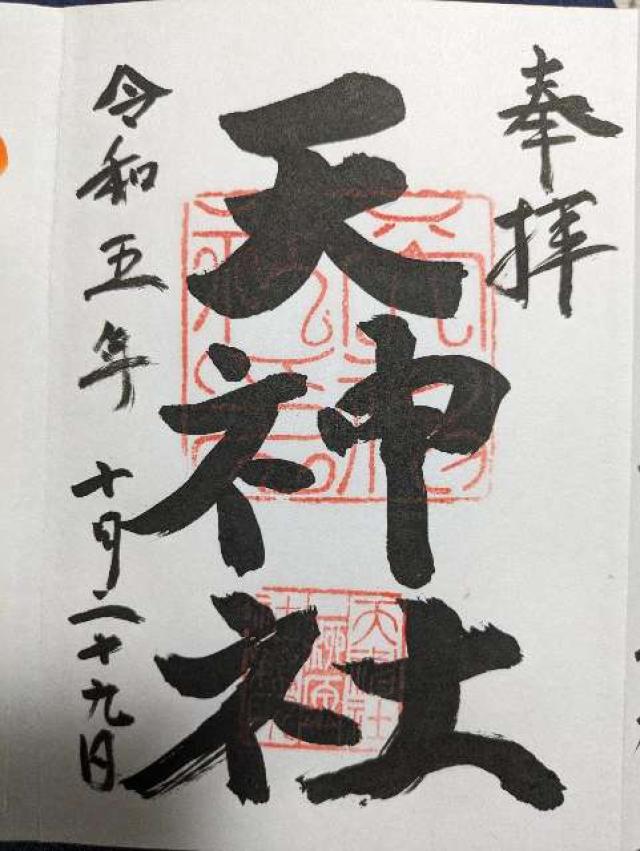 奉拝
天神社
令和五年十月二十九日